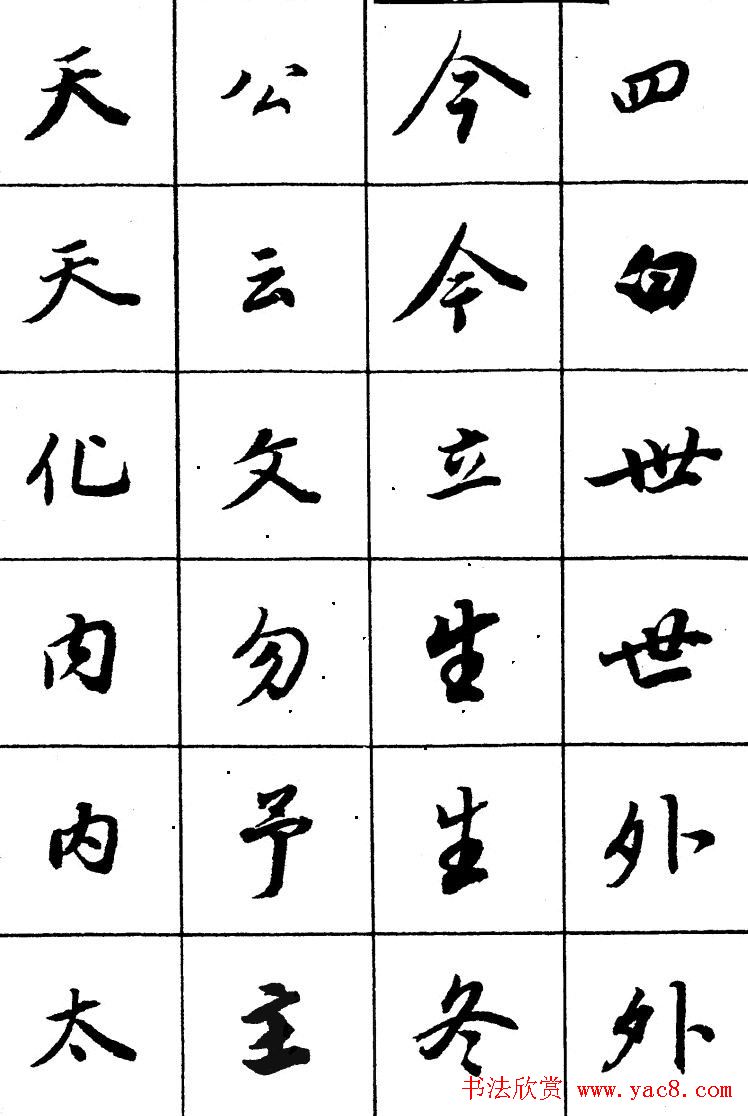 天 公 今 四
天 云 今 白
化 文 立 世
内 勿 生 世
内 予 生 外
太 主 冬 外
书法欣赏 www.yac8.com